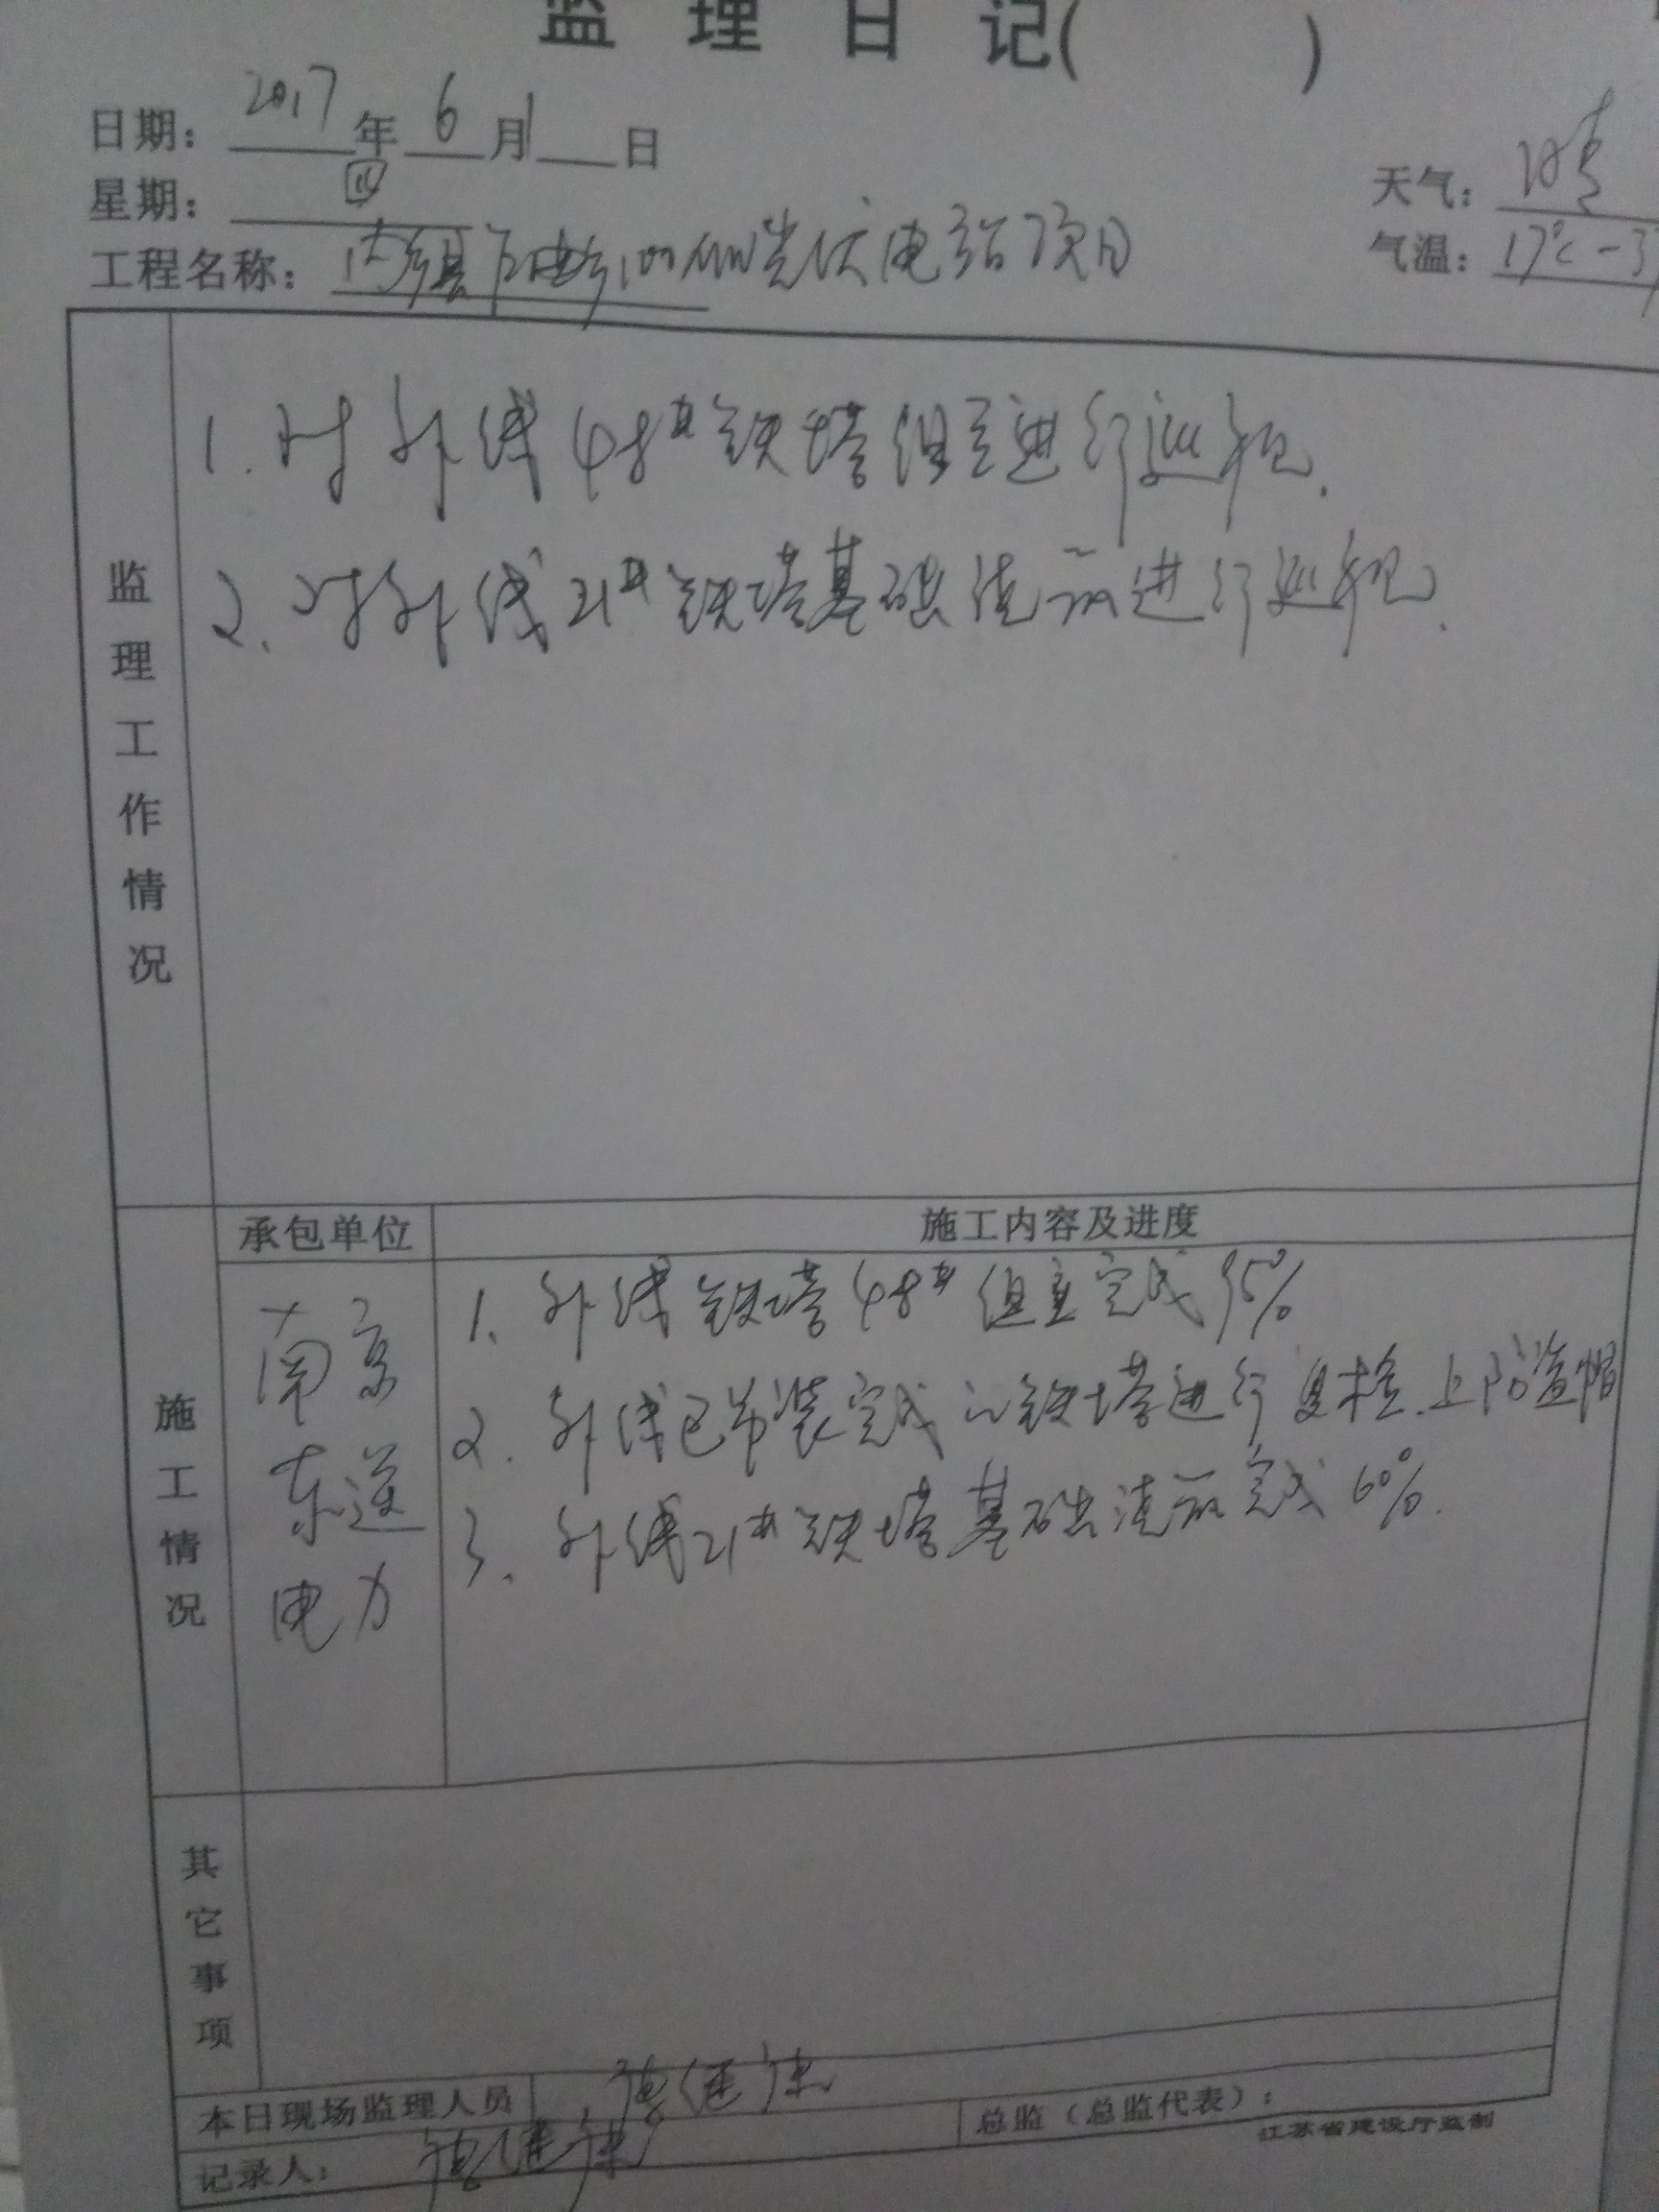 监理日记( )
日期: 2017年6月1日
星期: 四
天气: 晴
工程名称: 内乡县 100MW光伏电站项目
气温: 17℃-3
监理工作情况
1. 对外线48#铁塔组立进行巡视.
2. 对外线21#铁塔基础浇筑进行巡视.
施工情况
承包单位
施工内容及进度
南京
东送
电力
1. 外线铁塔48#组立完成95%
2. 外线已吊装完成的铁塔进行复检.上防盗帽
3. 外线21#铁塔基础浇筑完成60%.
其它事项
本日现场监理人员
总监（总监代表）:
记录人:
江苏省建设厅监制